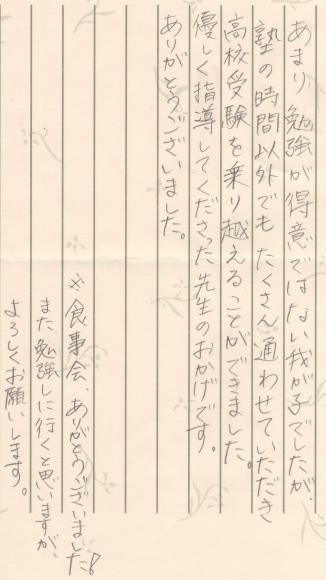 あまり勉強が得意ではない我が子でしたが、
塾の時間以外でもたくさん通わせていただき
高校受験を乗り越えることができました。
優しく指導してくださった先生のおかげです。
ありがとうございました。
※食事会、ありがとうございました!
また、勉強しに行くと思いますが、
よろしくお願いします。